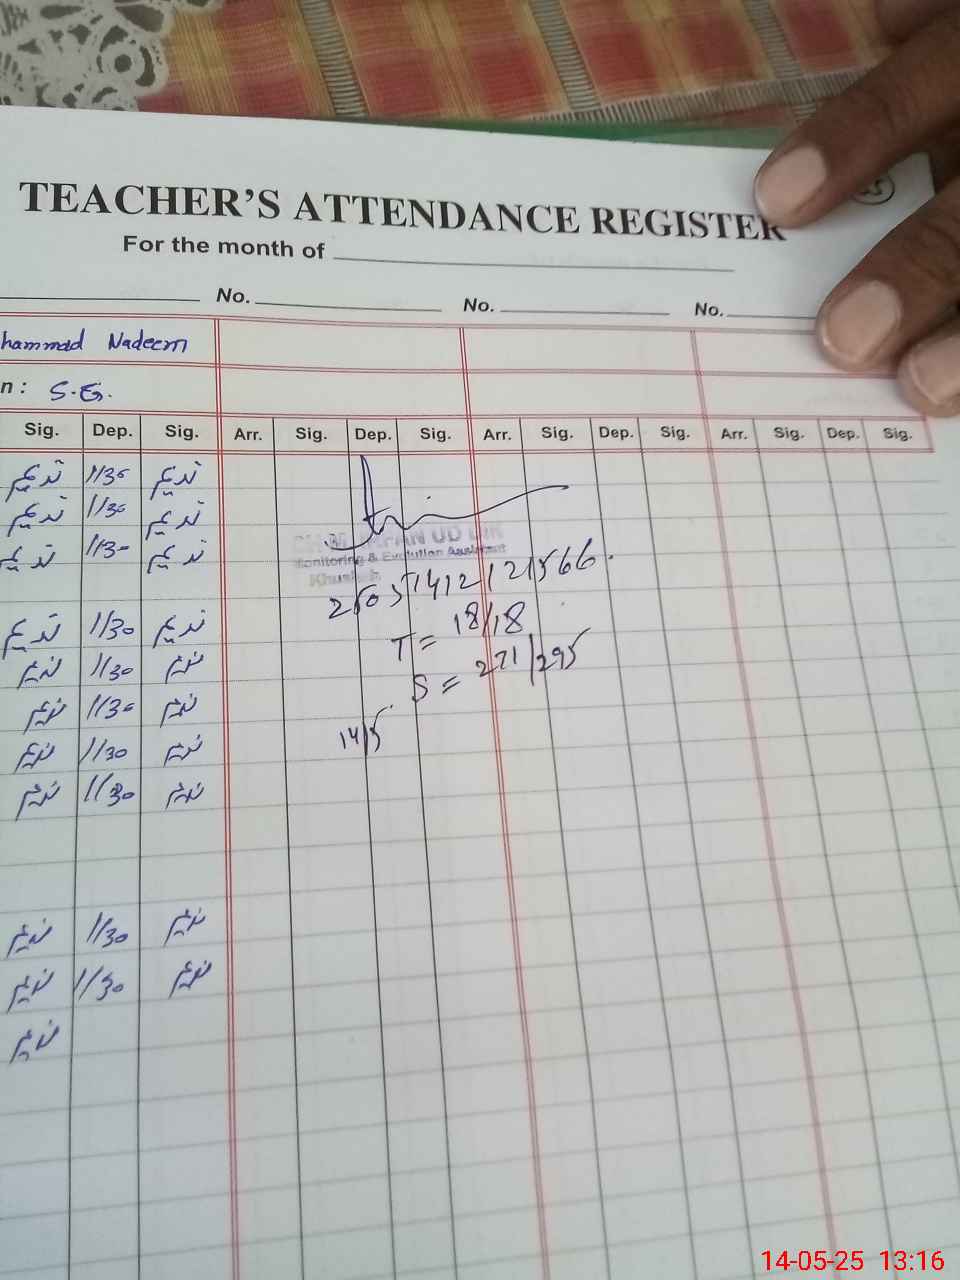 TEACHER'S ATTENDANCE REGISTER
For the month of
No. No. No.
hammad Nadeem
n : S.G.
Sig. Dep. Sig. Arr. Sig. Dep. Sig. Arr. Sig. Dep. Sig. Arr. Sig. Dep. Sig.
ندیم 1/30 ندیم
ندیم 1/30 ندیم
ندیم 1/30 ندیم
UD DIN
Monitoring & Evalution Assistant
Khushab
T = 18/18
ندیم 1/30 ندیم
ندیم 1/30 ندیم
S = 271/295
ندیم 1/30 ندیم
14/5
ندیم 1/30 ندیم
ندیم 1/30 ندیم
ندیم 1/30 ندیم
ندیم 1/30 ندیم
ندیم
14-05-25 13:16